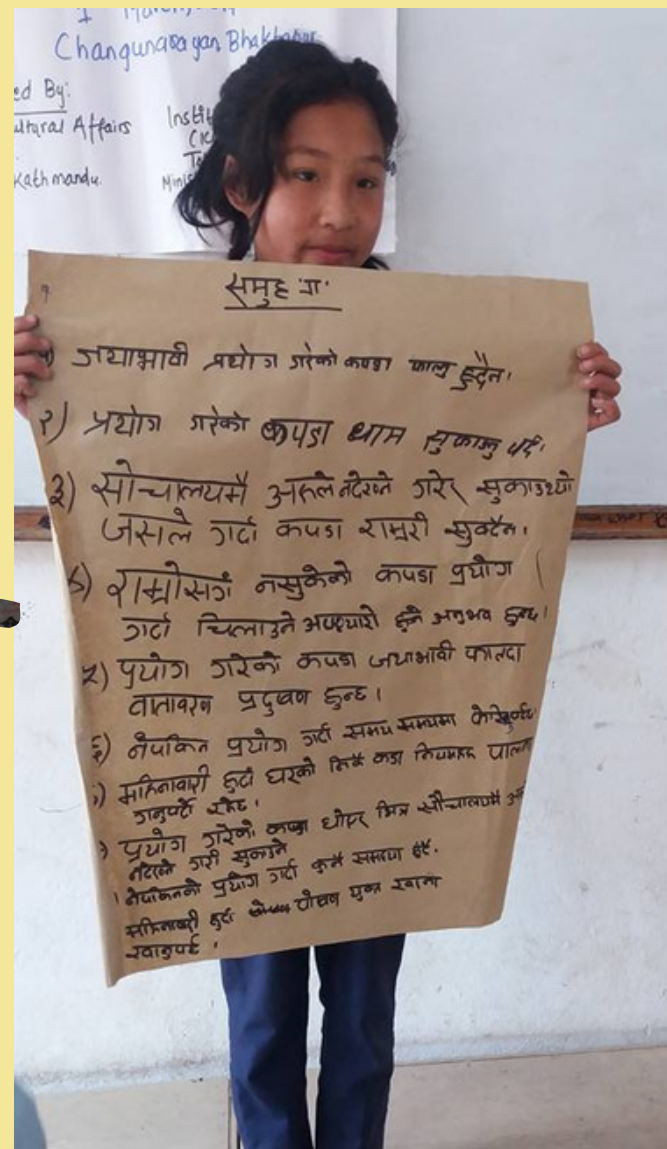 Changunarayan Bhaktapur
ed By:
ultural Affairs
Kathmandu.
Instit
Minis
समुह 'ग'
१) जथाभावी प्रयोग गरेको कपडा फाल्नु हुदैन।
२) प्रयोग गरेको कपडा घाम सुकाउनु पर्द
३) सौचालयमै अरुले नदेख्ने गरेर सुकाउथ्यो
जसले गर्दा कपडा राम्ररी सुक्दैन।
४) राम्रोसगं नसुकेको कपडा प्रयोग
गर्दा चिलाउने अप्ठ्यारो हुने अनुभव हुन्छ।
५) प्रयोग गरेको कपडा जथाभावी फाल्दा
वातावरण प्रदुषण हुन्छ।
६) नेपकिन प्रयोग गर्दा समय समयमा
७) महिनावारी हुदाँ घरको कडा नियमहरु पालना
गनुपर्दो रहेछ।
प्रयोग गरेको कपडा धोएर भित्र सौचालयमै
नदेख्ने गरी सुकाउने
नेपकिनको प्रयोग गर्दा कुनै समस्या छैन.
महिनावारी हुदाँ पोषण युक्त खाना
खानुपर्छ।